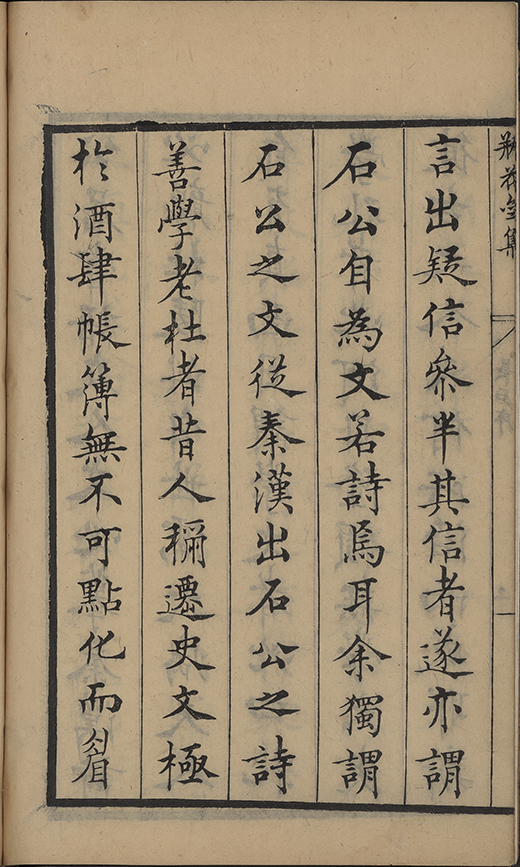 瓶花
集
言出疑信參半其信者遂亦謂
石公自為文若詩焉耳余獨謂
石公之文從秦漢出石公之詩
善學老杜者昔人稱遷史文極
於酒肆帳簿無不可點化而眉